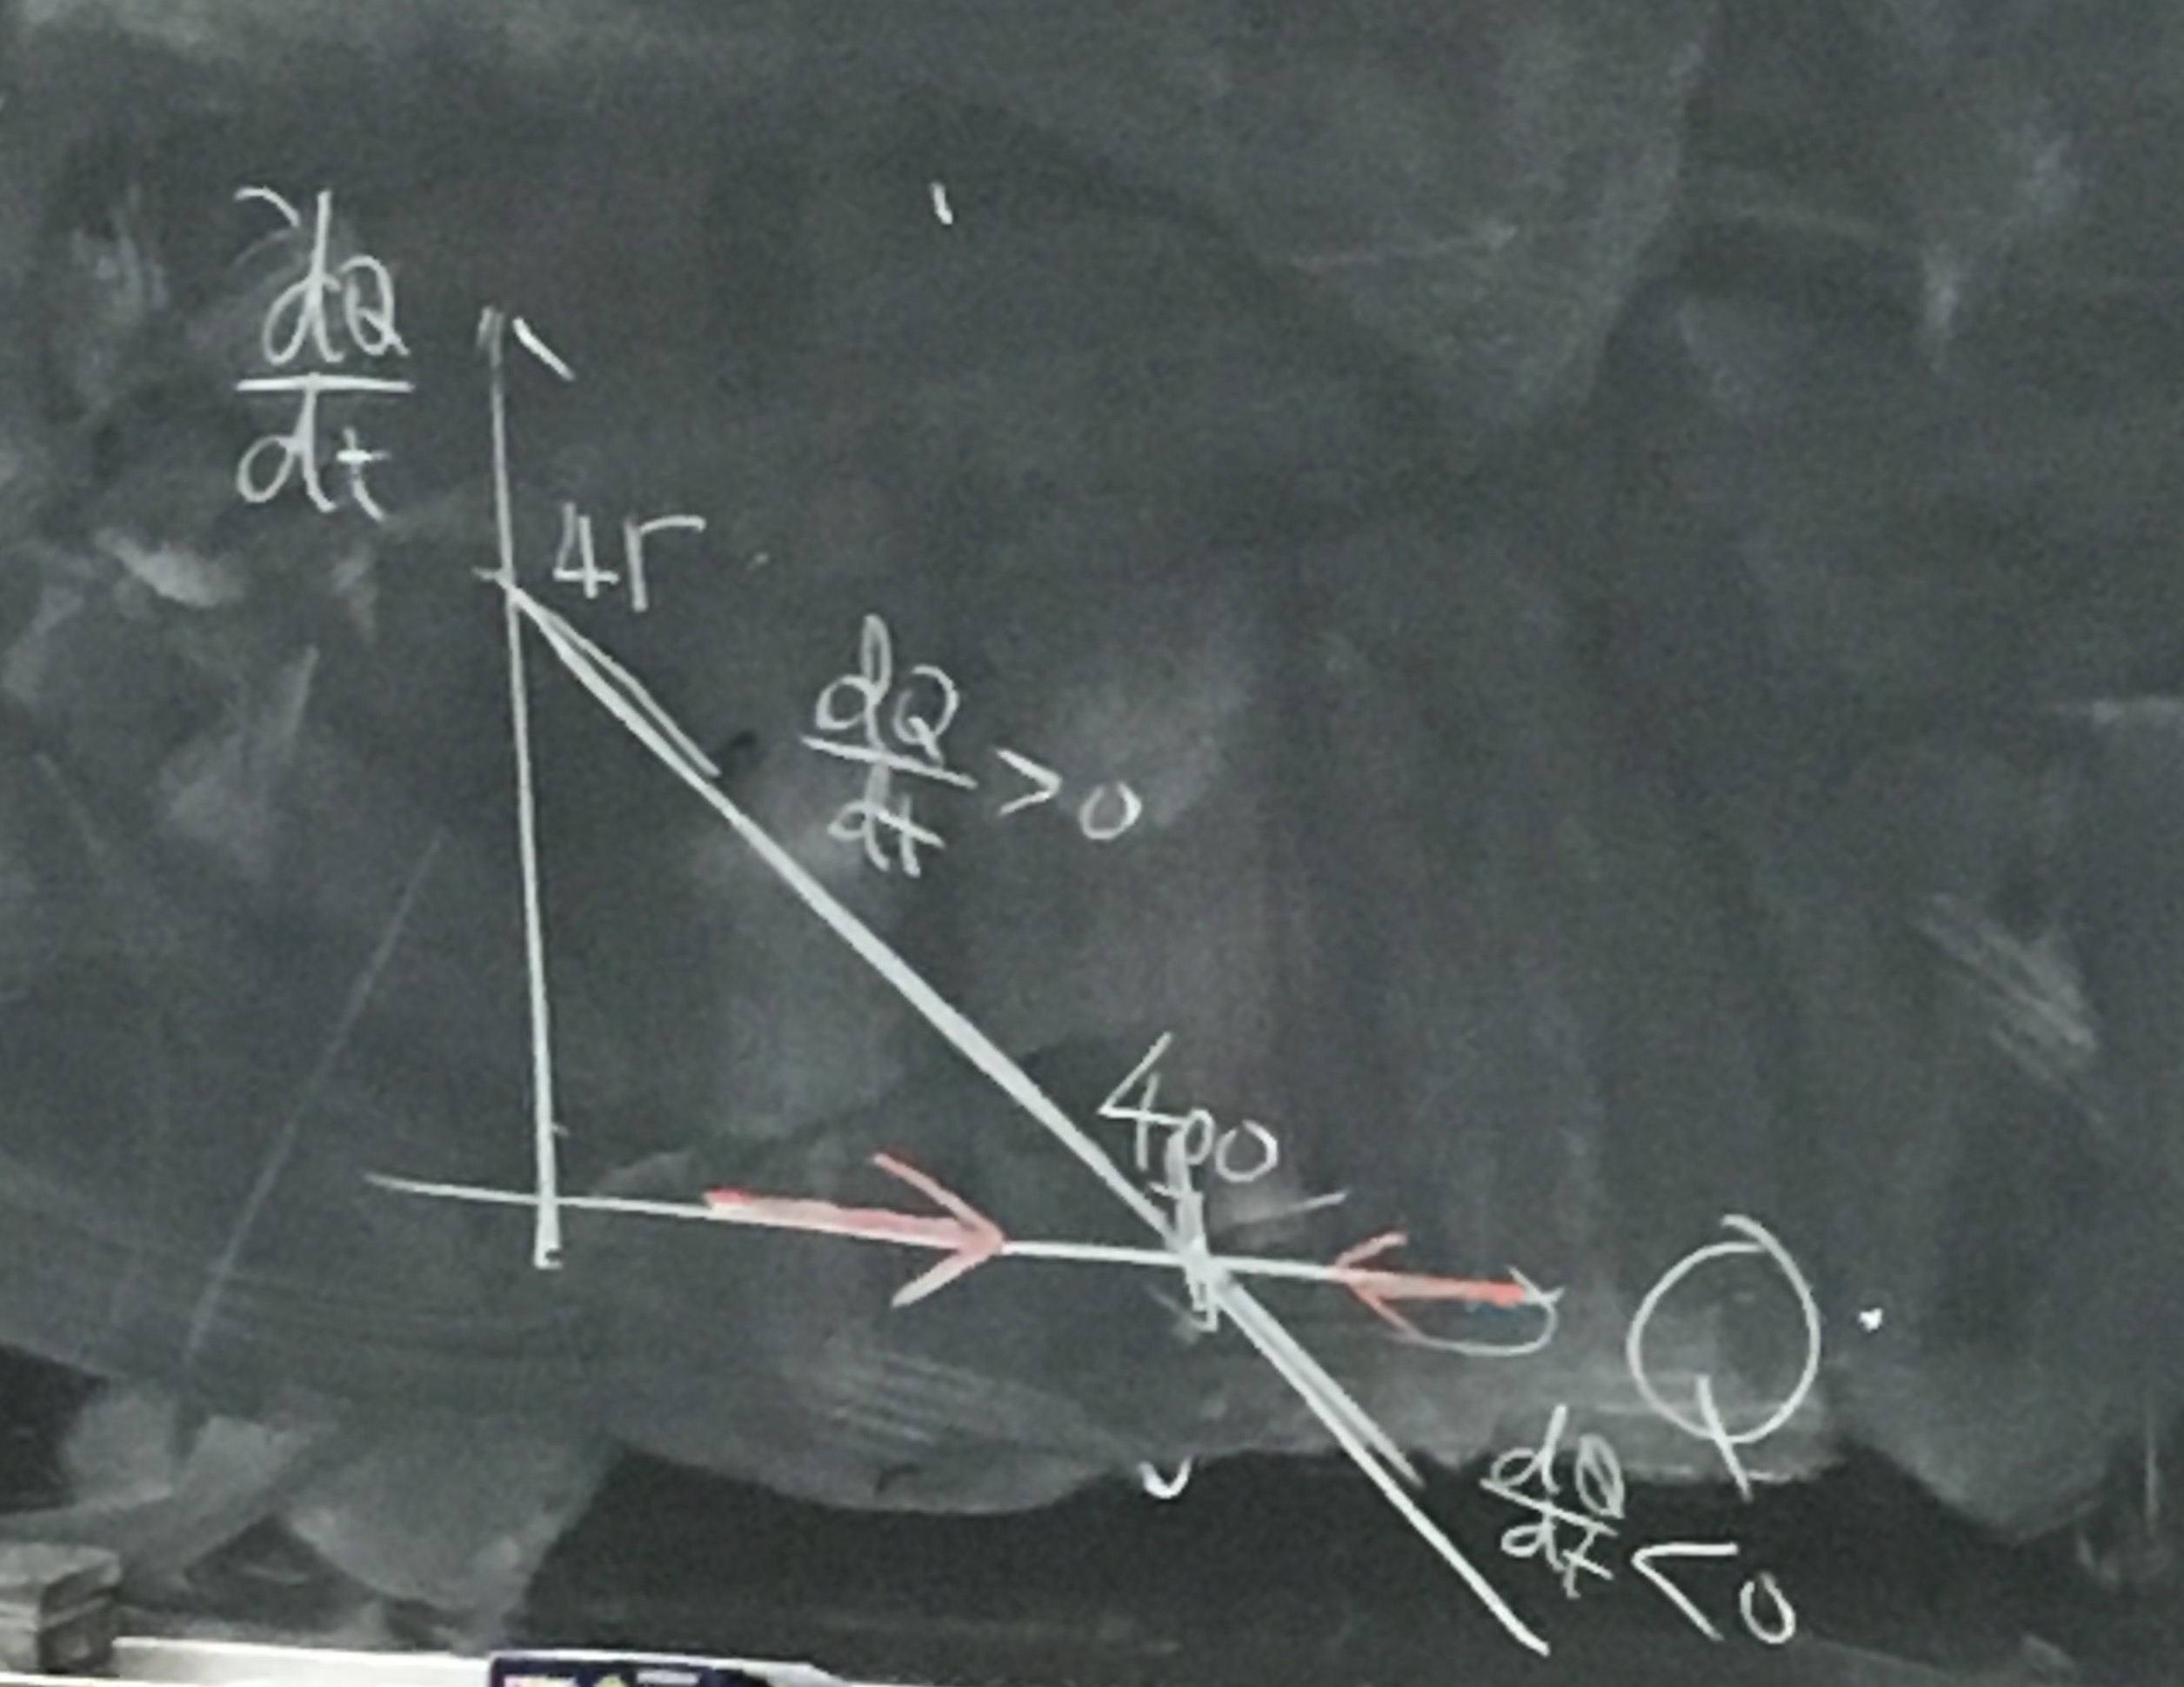 dQ
dt
4r
dQ
dt > 0
400
Q
dQ
dt < 0